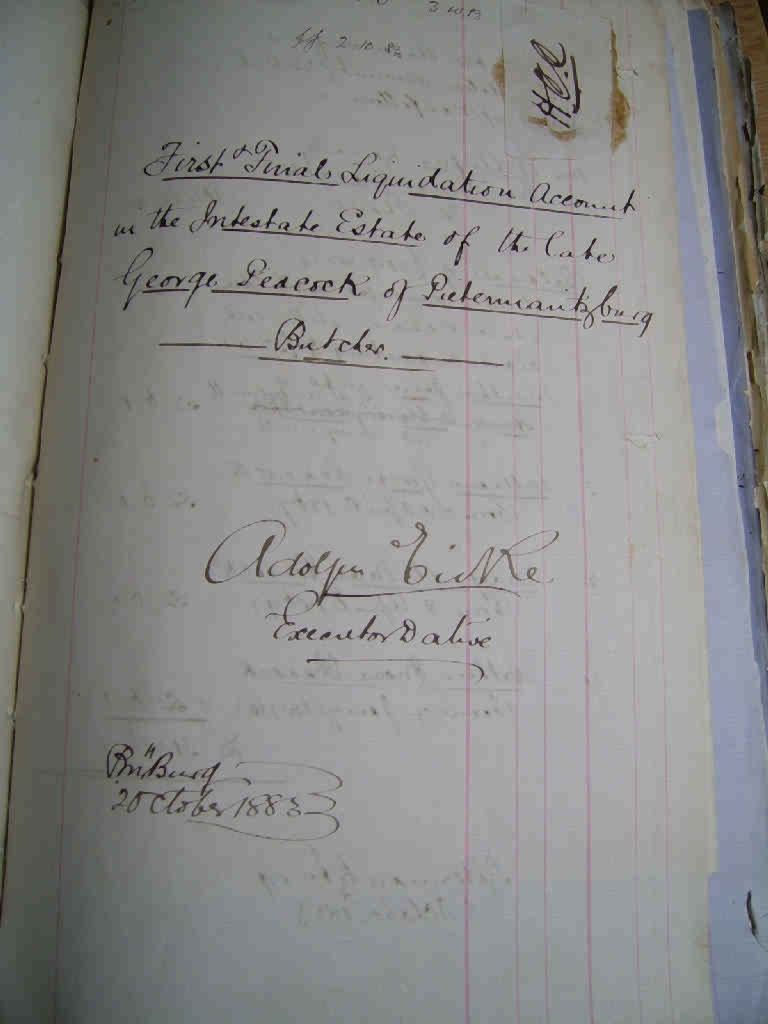 2.10.83
First & Final Liquidation Account
in the Intestate Estate of the late
George Peacock of Pietermaritzburg
Butcher.
Adolph Eicke
Executor Dative
PmBurg
2 October 1883